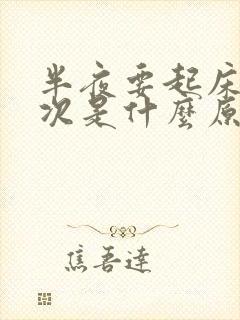 半夜要起床
次是什麼原
焦吾達